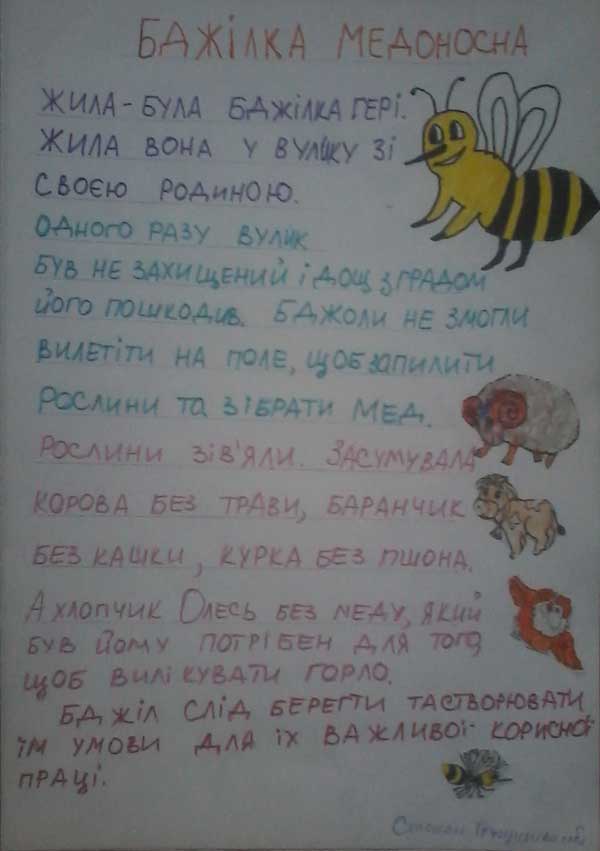 БДЖІЛКА МЕДОНОСНА
ЖИЛА-БУЛА БДЖІЛКА ГЕРІ.
ЖИЛА ВОНА У ВУЛИКУ ЗІ
СВОЄЮ РОДИНОЮ.
ОДНОГО РАЗУ ВУЛИК
БУВ НЕ ЗАХИЩЕНИЙ І ДОЩ З ГРАДОМ
ЙОГО ПОШКОДИВ. БДЖОЛИ НЕ ЗМОГЛИ
ВИЛЕТІТИ НА ПОЛЕ, ЩОБ ЗАПИЛИТИ
РОСЛИНИ ТА ЗІБРАТИ МЕД.
РОСЛИНИ ЗІВ'ЯЛИ. ЗАСУМУВАЛА
КОРОВА БЕЗ ТРАВИ, БАРАНЧИК
БЕЗ КАШКИ, КУРКА БЕЗ ПШОНА.
А ХЛОПЧИК ОЛЕСЬ БЕЗ МЕДУ, ЯКИЙ
БУВ ЙОМУ ПОТРІБЕН ДЛЯ ТОГО,
ЩОБ ВИЛІКУВАТИ ГОРЛО.
БДЖІЛ СЛІД БЕРЕГТИ ТА СТВОРЮВАТИ
ЇМ УМОВИ ДЛЯ ЇХ ВАЖЛИВОЇ КОРИСНОЇ
ПРАЦІ.